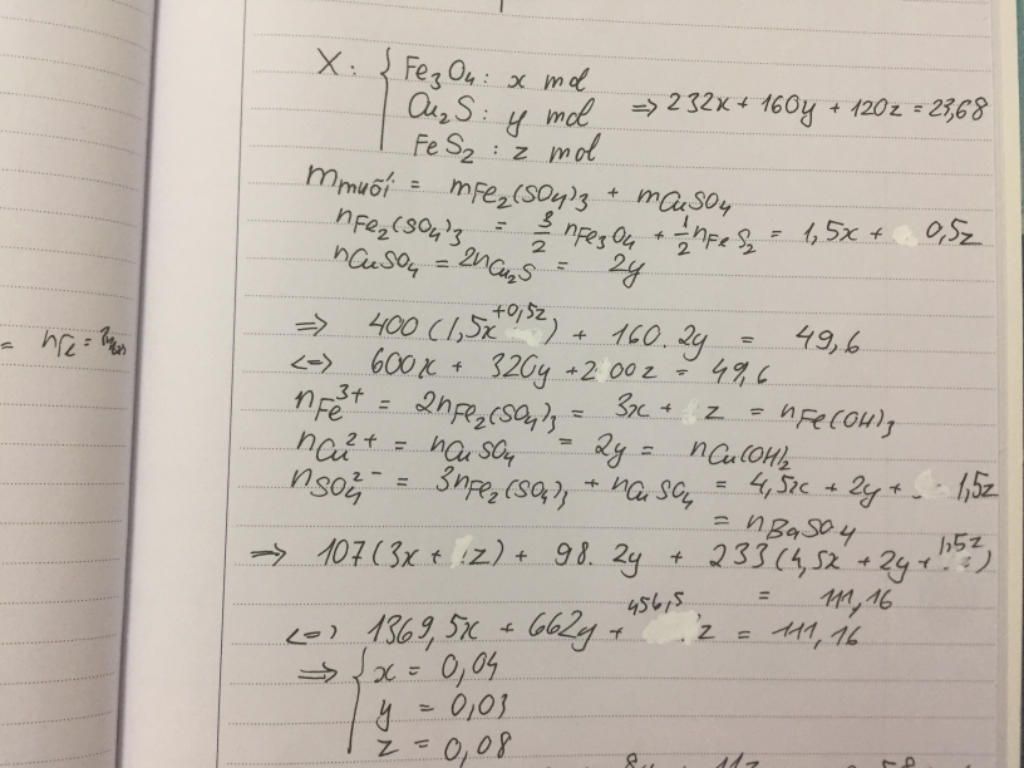 X: { Fe₃O₄: x mol
Cu₂S: y mol ⇒ 232x + 160y + 120z = 23,68
FeS₂: z mol
m muối = mFe₂(SO₄)₃ + mCuSO₄
nFe₂(SO₄)₃ = 3/2 nFe₃O₄ + 1/2 nFeS₂ = 1,5x + 0,5z
nCuSO₄ = 2nCu₂S = 2y
⇒ 400(1,5x +0,5z) + 160.2y = 49,6
<=> 600x + 320y + 200z = 49,6
nFe³⁺ = 2nFe₂(SO₄)₃ = 3x + z = nFe(OH)₃
= n
nCu²⁺ = nCuSO₄ = 2y = nCu(OH)₂
nSO₄²⁻ = 3nFe₂(SO₄)₃ + nCuSO₄ = 4,5x + 2y + 1,5z
= nBaSO₄
⇒ 107(3x + z) + 98.2y + 233(4,5x + 2y + 1,5z)
= 111,16
<=> 1369,5x + 662y + 456,5z = 111,16
⇒ { x = 0,04
y = 0,03
z = 0,08